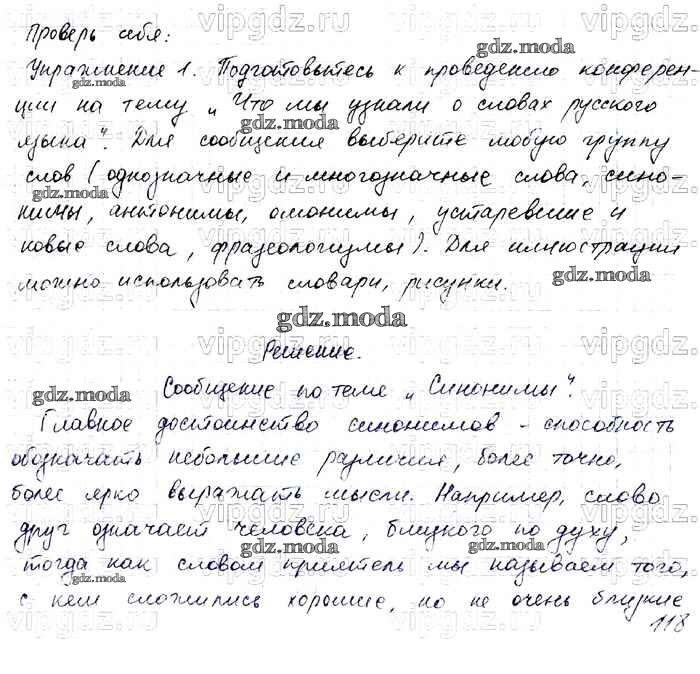 Проверь себя:
Упражнение 1. Подготовьтесь к проведению конферен-
ции на тему „Что мы узнали о словах русского
языка". Для сообщения выберите любую группу
слов (однозначные и многозначные слова, сино-
нимы, антонимы, омонимы, устаревшие и
новые слова, фразеологизмы). Для иллюстрации
можно использовать словари, рисунки.
gdz.moda
Решение.
Сообщение по теме „Синонимы".
Главное достоинство синонимов - способность
обозначать небольшие различия, более точно,
более ярко выражать мысли. Например, слово
друг означает человека, близкого по духу,
тогда как словом приятель мы называем того,
с кем сложились хорошие, но не очень близкие
118